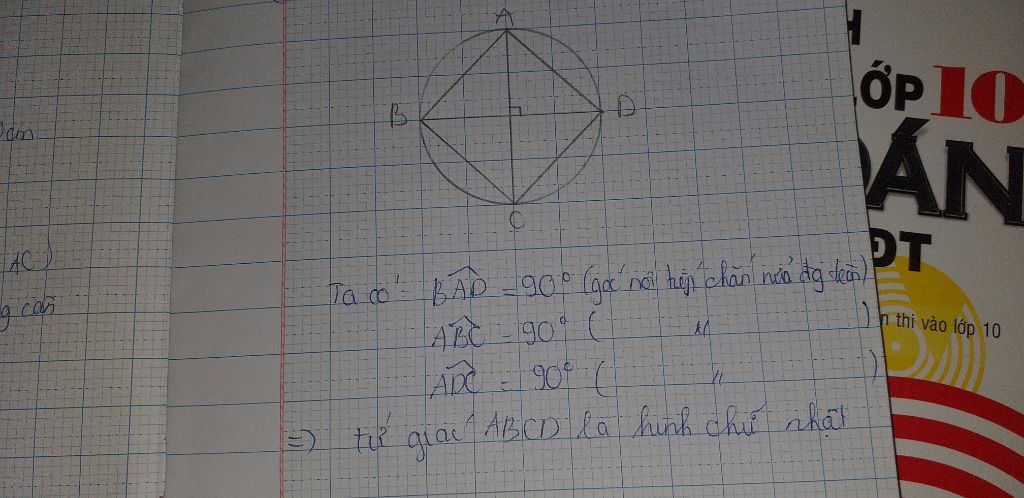 A
B
D
C
Ta có: BAD = 90° (góc nội tiếp chắn nửa đg tròn)
ABC = 90° (〃 )
ADC = 90° ( 〃 )
=> tứ giác ABCD là hình chữ nhật
AC)
H
LỚP 10
OÁN
ĐT
n thi vào lớp 10